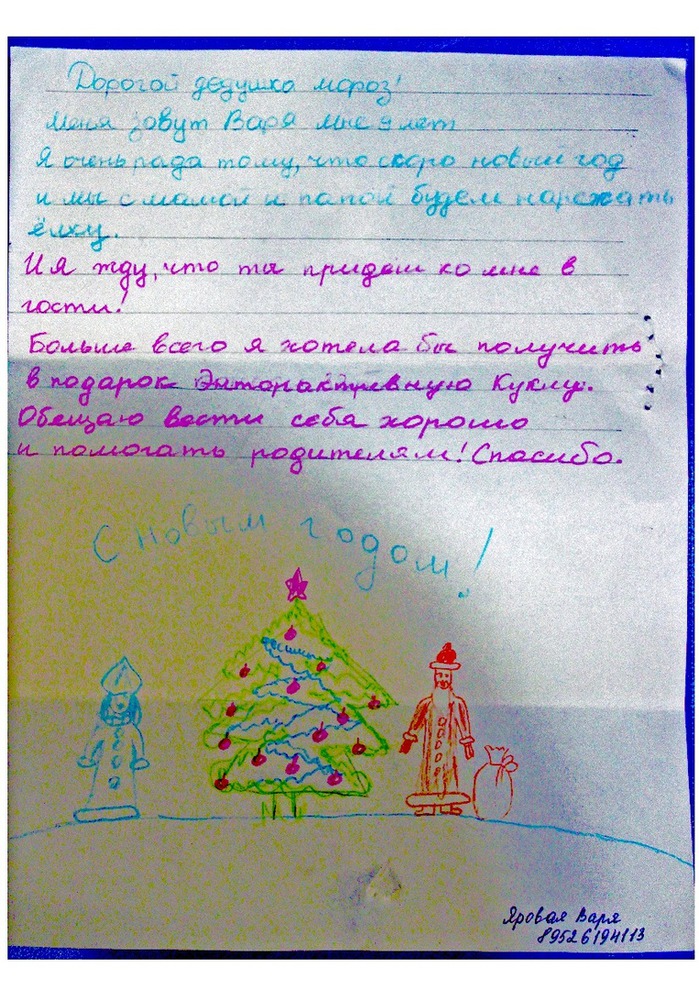 Дорогой дедушка мороз!
Меня зовут Варя мне 9 лет
Я очень рада тому, что скоро новый год
и мы с мамой и папой будем наряжать
ёлку.
И я жду, что ты придёш ко мне в
гости!
Больше всего я хотела бы получить
в подарок куклу.
Обещаю вести себя хорошо
и помогать родителям! Спасибо.
С новым годом!
Яровая Варя
89526194113